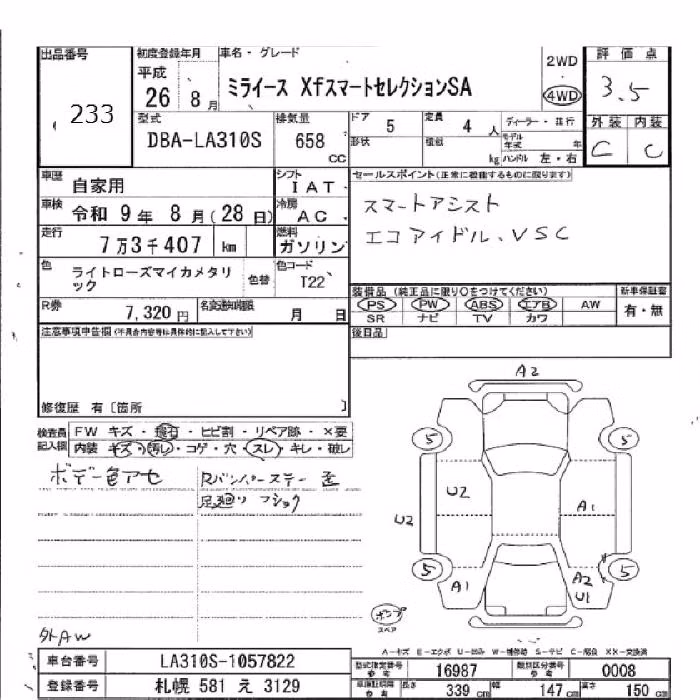 出品番号 初度登録年月 車名・グレード 評価点
233
平成
26 8月
ミライース XfスマートセレクションSA
2WD
4WD
3.5
型式 排気量
DBA-LA310S
658
CC
ドア 5
定員 4人
形状
積載 kg
ディーラー・並行
モデル年式 年
ハンドル 左・右
外装 内装
C C
車歴 自家用
シフト IAT
車検 令和 9年 8月(28日)
冷房 AC
走行 7万3千407 km
燃料 ガソリン
色 ライトローズマイカメタリック
色替
色コード T22
R券 7,320円
名変期限 月 日
セールスポイント(正常に機能するものに限ります)
スマートアシスト
エコアイドル、VSC
装備品(純正品に限り○をつけてください)
PS PW ABS エアB AW
SR ナビ TV カワ
新車保証書
有・無
後日品
注意事項申告欄(不具合内容等は具体的に記入して下さい)
修復歴 有〔箇所 〕
検査員記入欄
FW キズ・飛石・ヒビ割・リペア跡・×要
内装 キズ・汚レ・コゲ・穴・スレ・キレ・破レ
ボデー色アセ
Rバンパーステー歪
足廻り フショク
外AW
A2
5 5
U2
U2
A1
5 5
A1
A2
U1
ポンプ
スペア
A-キズ E-エクボ U-凹み W-補修跡 S-サビ C-腐食 XX-交換済
車台番号 LA310S-1057822
登録番号 札幌 581 え 3129
型式指定番号 参考 16987
類別区分番号 参考 0008
車庫証明用 参考
長さ 339 cm
幅 147 cm
高さ 150 cm